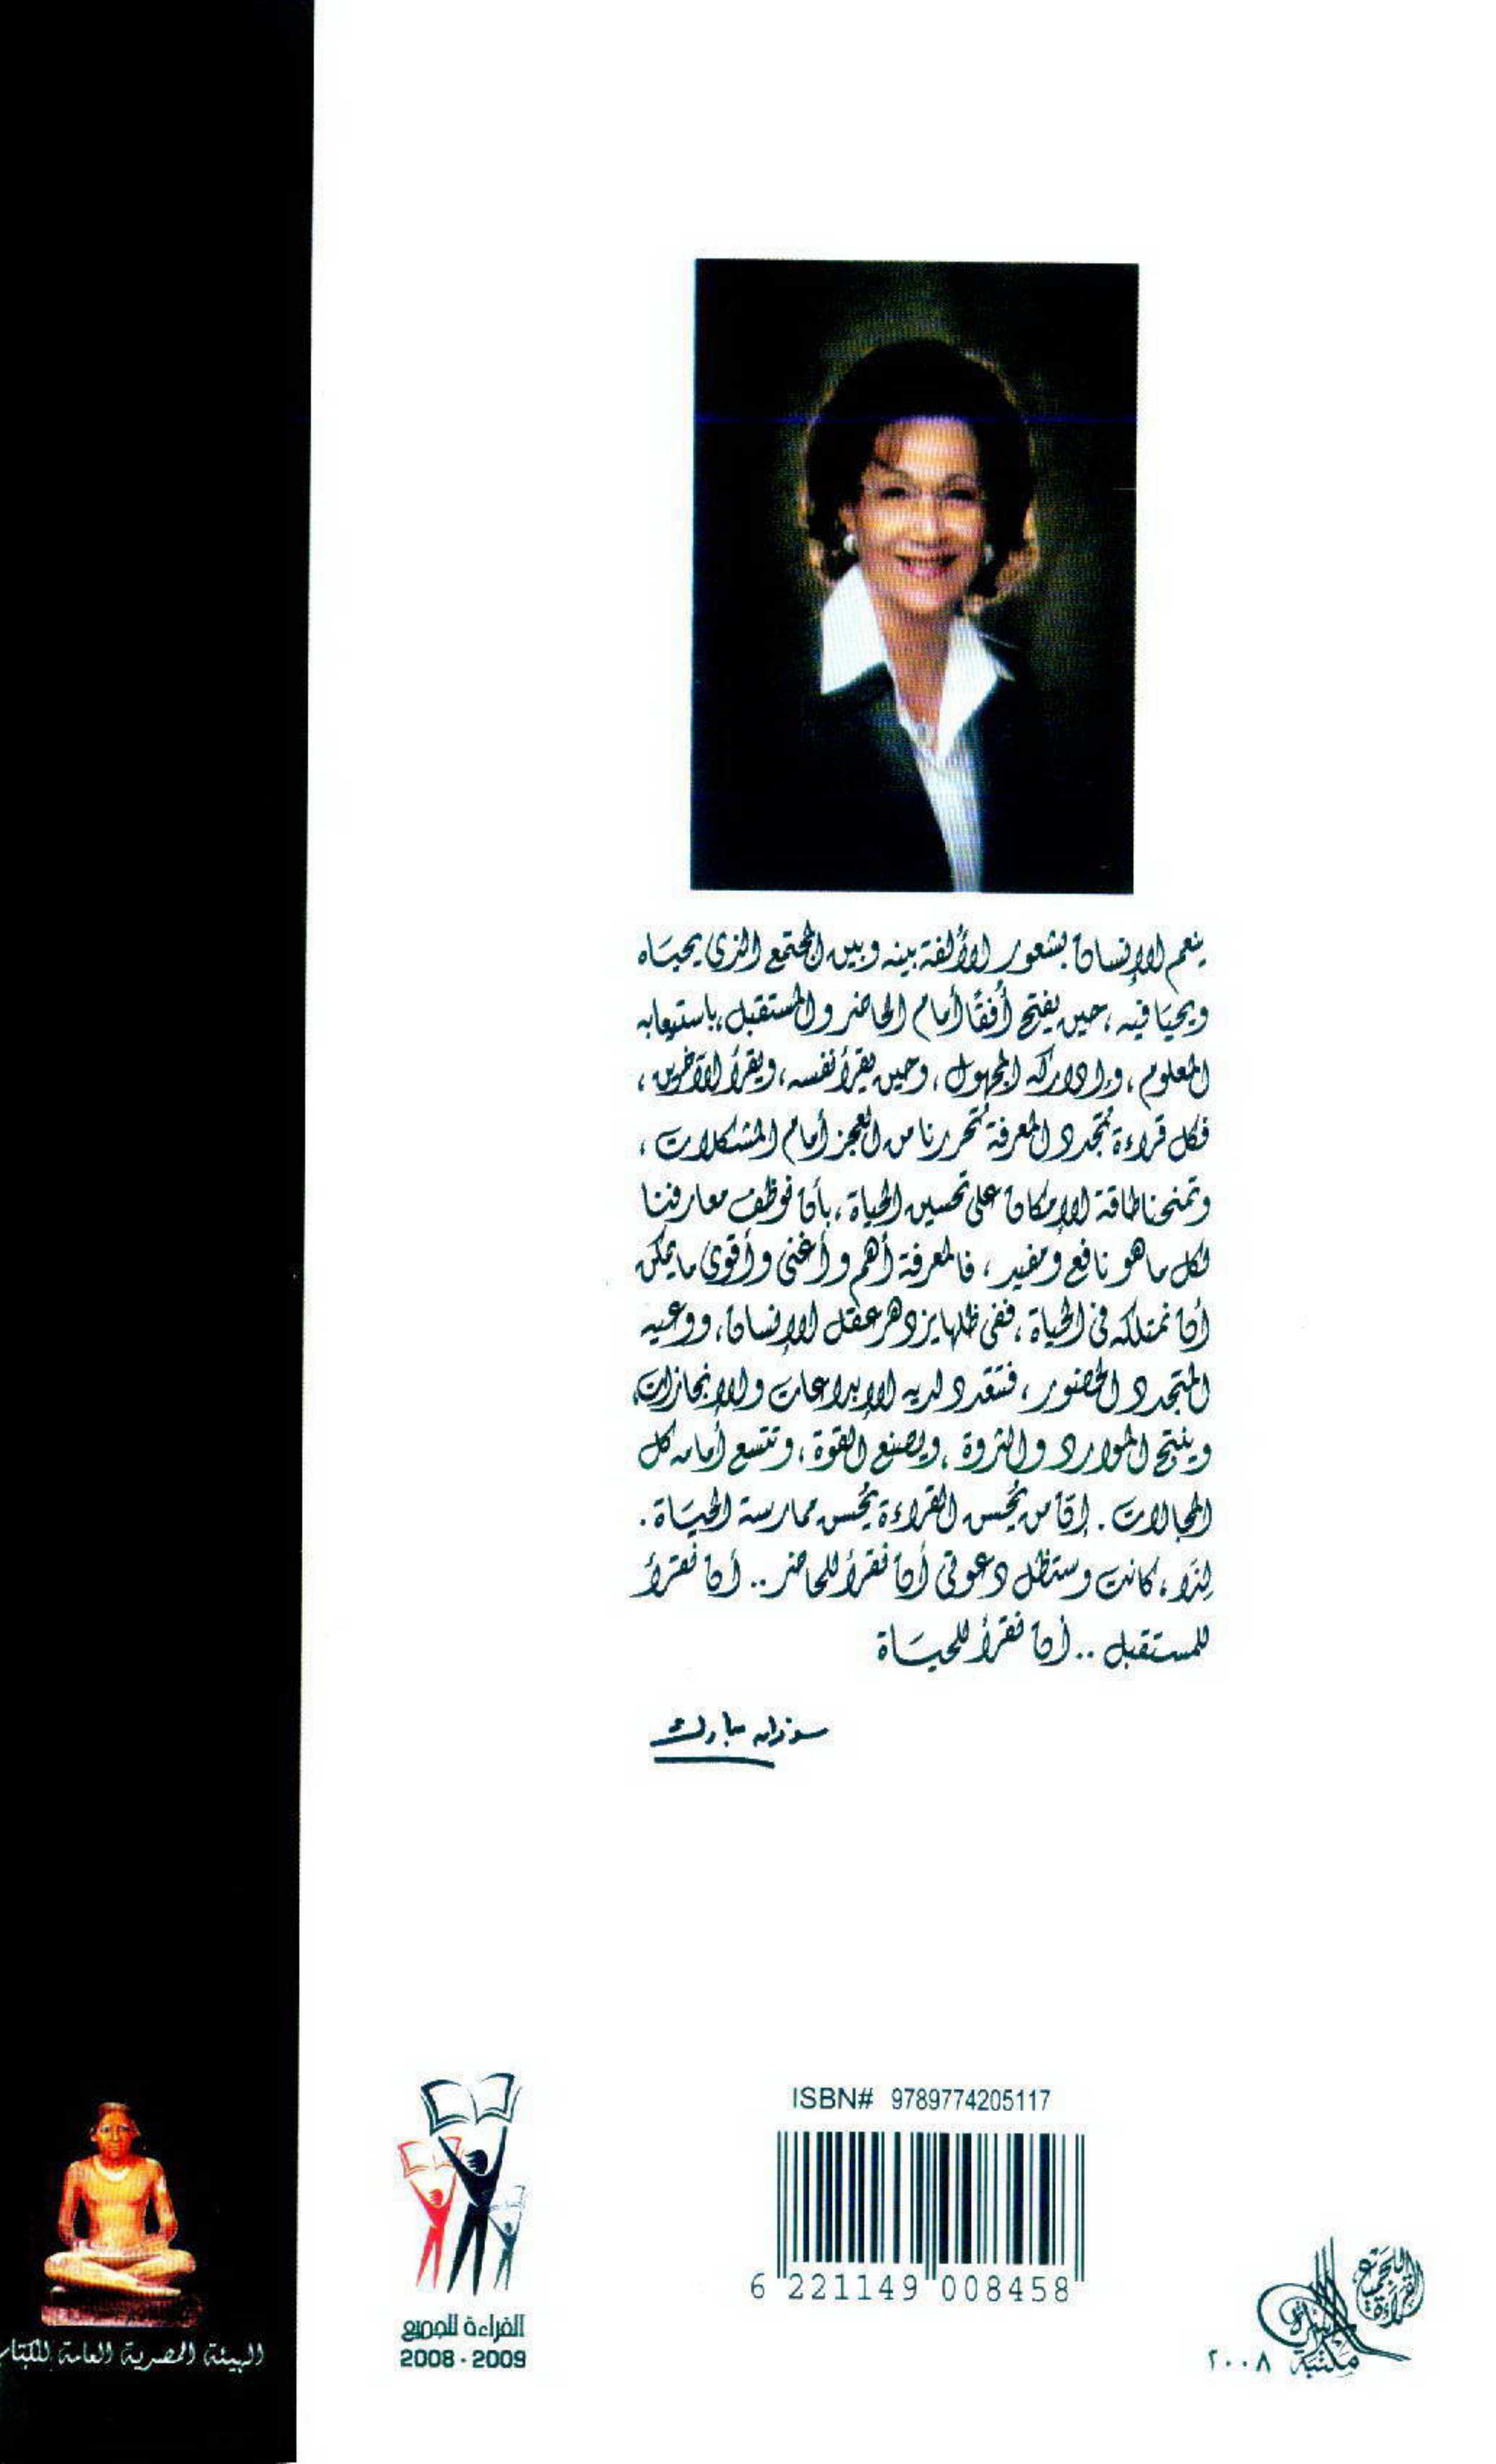 ينعم الإنسان بشعور الألفة بينه وبين المجتمع الذى يحياه
ويحيا فيه، حين يفتح أفقًا أمام الحاضر والمستقبل، باستيعابه
المعلوم، وإدراكه المجهول، وحين يقرأ نفسه، ويقرأ الآخرين،
فكل قراءة تُجدد المعرفة تُحررنا من العجز أمام المشكلات،
وتمنحنا طاقة الإمكان على تحسين الحياة، بأن نوظف معارفنا
لكل ما هو نافع ومفيد، فالمعرفة أهم وأغنى وأقوى ما يمكن
أن نمتلكه فى الحياة، ففى ظلها يزدهر عقل الإنسان، ووعيه
المتجدد الحضور، فتتعدد لديه الإبداعات والإنجازات،
وينتج الموارد والثروة، ويصنع القوة، وتتسع أمامه كل
المجالات. إن من يُحسن القراءة يُحسن ممارسة الحياة.
لذا، كانت وستظل دعوتى أن نقرأ للحاضر.. أن نقرأ
للمستقبل.. أن نقرأ للحياة
سوزان مبارك
ISBN# 9789774205117
6 221149 008458
القراءة للجميع
2008 - 2009
القراءة للجميع
مكتبة
٢٠٠٨
الهيئة المصرية العامة للكتاب